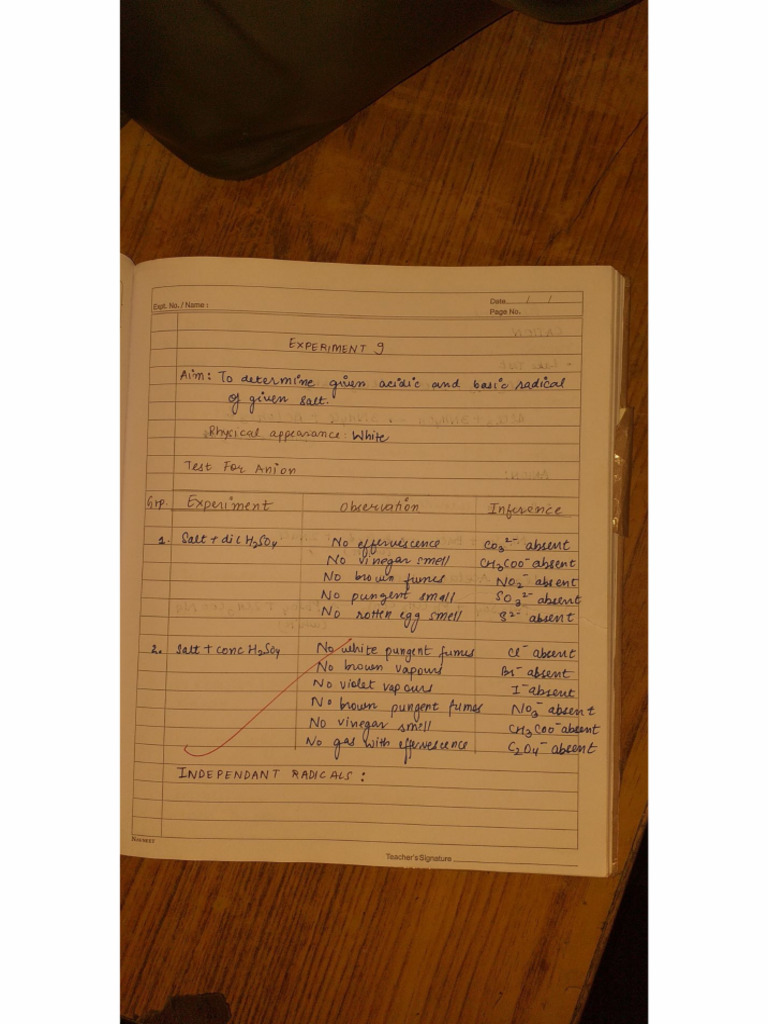 Expt. No. / Name :
Date / /
Page No.
EXPERIMENT 9
Aim: To determine given acidic and basic radical
of given salt.
Physical appearance: White
Test For Anion
Grp. Experiment Observation Inference
1. Salt + dil H₂SO₄ No effervescence CO₃²⁻ absent
No vinegar smell CH₃COO⁻ absent
No brown fumes NO₂⁻ absent
No pungent smell SO₃²⁻ absent
No rotten egg smell S²⁻ absent
2. Salt + conc H₂SO₄ No white pungent fumes Cl⁻ absent
No brown vapours Br⁻ absent
No violet vapours I⁻ absent
No brown pungent fumes NO₃⁻ absent
No vinegar smell CH₃COO⁻ absent
No gas with effervescence C₂O₄⁻ absent
INDEPENDANT RADICALS :
Teacher's Signature